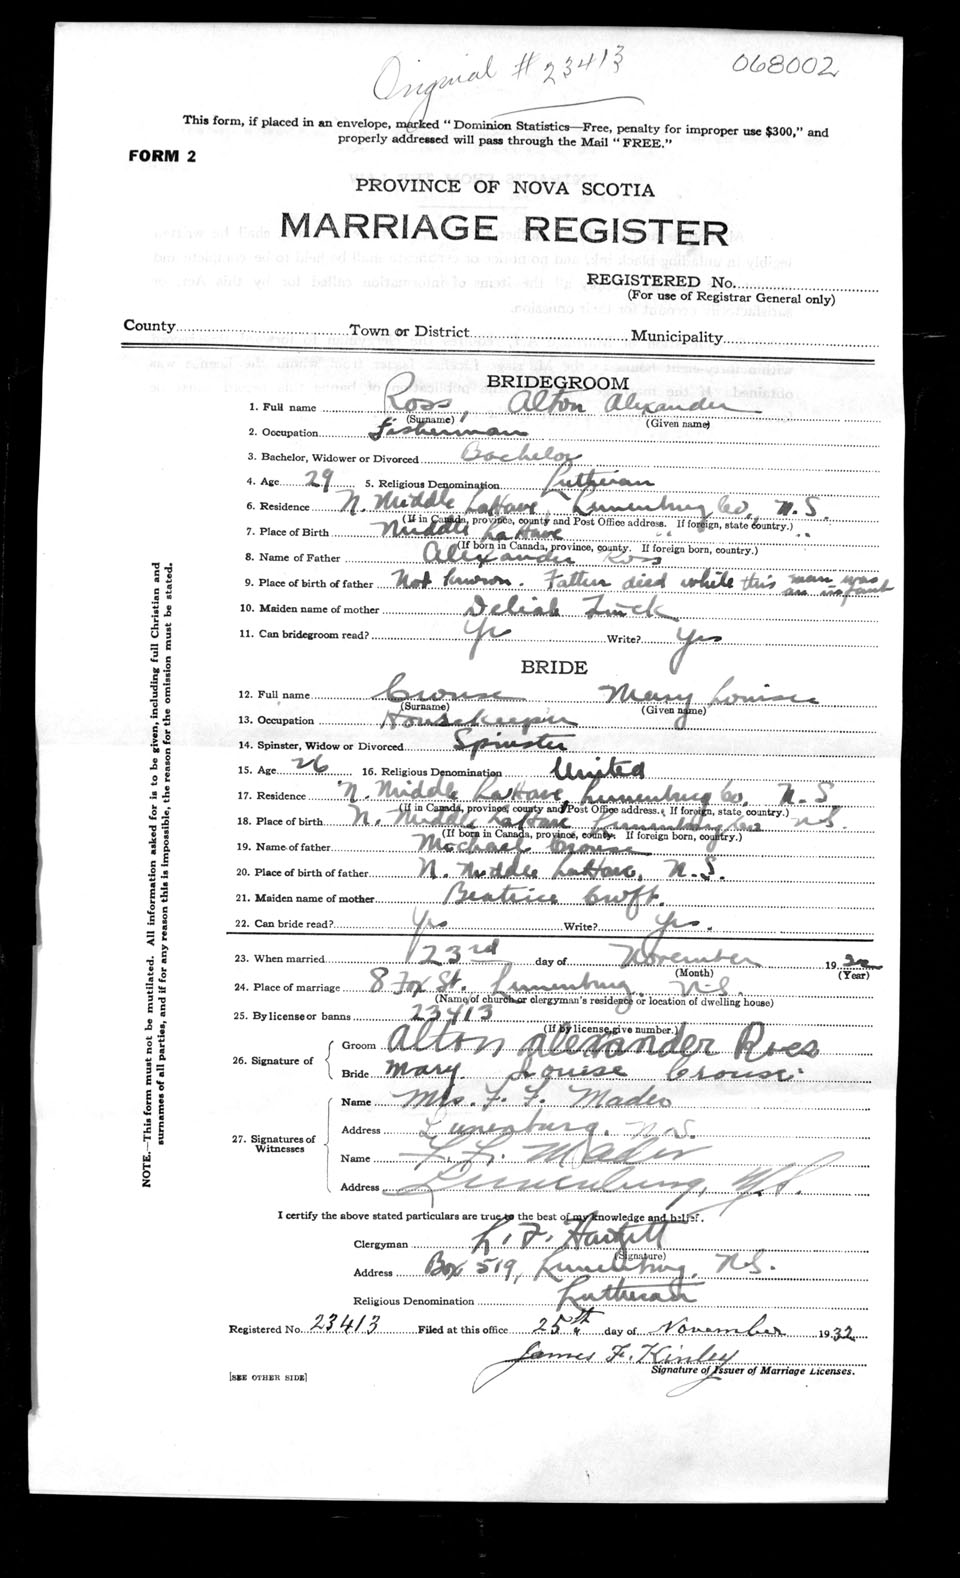 Original # 23413
068002
This form, if placed in an envelope, marked "Dominion Statistics—Free, penalty for improper use $300," and
properly addressed will pass through the Mail "FREE."
FORM 2
PROVINCE OF NOVA SCOTIA
MARRIAGE REGISTER
REGISTERED No.
(For use of Registrar General only)
County Town or District Municipality
BRIDEGROOM
1. Full name Ross, Alton Alexander
(Surname) (Given name)
2. Occupation Fisherman
3. Bachelor, Widower or Divorced Bachelor
4. Age 29 5. Religious Denomination Lutheran
6. Residence N. Middle LaHave, Lunenburg Co., N.S.
(If in Canada, province, county and Post Office address. If foreign, state country.)
7. Place of Birth Middle LaHave " "
(If born in Canada, province, county. If foreign born, country.)
8. Name of Father Alexander Ross
9. Place of birth of father Not known. Father died while this man was
an infant
10. Maiden name of mother Deliah Zinck
11. Can bridegroom read? Yes Write? Yes
BRIDE
12. Full name Crouse Mary Louise
(Surname) (Given name)
13. Occupation Housekeeper
14. Spinster, Widow or Divorced Spinster
15. Age 26 16. Religious Denomination United
17. Residence N. Middle LaHave, Lunenburg Co, N.S
(If in Canada, province, county and Post Office address. If foreign, state country.)
18. Place of birth N. Middle LaHave Lunenburg Co N.S.
(If born in Canada, province, county. If foreign born, country.)
19. Name of father Michael Crouse
20. Place of birth of father N. Middle LaHave, N.S.
21. Maiden name of mother Beatrice Croft.
22. Can bride read? Yes Write? Yes.
23. When married 23rd day of November 1932
(Month) (Year)
24. Place of marriage 8 Fox St. Lunenburg, N.S.
(Name of church or clergyman's residence or location of dwelling house)
25. By license or banns 23413
(If by license, give number.)
26. Signature of Groom Alton Alexander Ross
Bride Mary Louise Crouse
27. Signatures of Witnesses Name Mrs. F. F. Mader
Address Lunenburg, N.S.
Name F. F. Mader
Address Lunenburg, N.S.
I certify the above stated particulars are true to the best of my knowledge and belief.
Clergyman
(Signature)
Address Box 519, Lunenburg, N.S.
Religious Denomination Lutheran
Registered No. 23413 Filed at this office 25th day of November 1932
James F. Kinley
Signature of Issuer of Marriage Licenses.
[SEE OTHER SIDE]
NOTE.—This form must not be mutilated. All information asked for is to be given, including full Christian and
surnames of all parties, and if for any reason this is impossible, the reason for the omission must be stated.